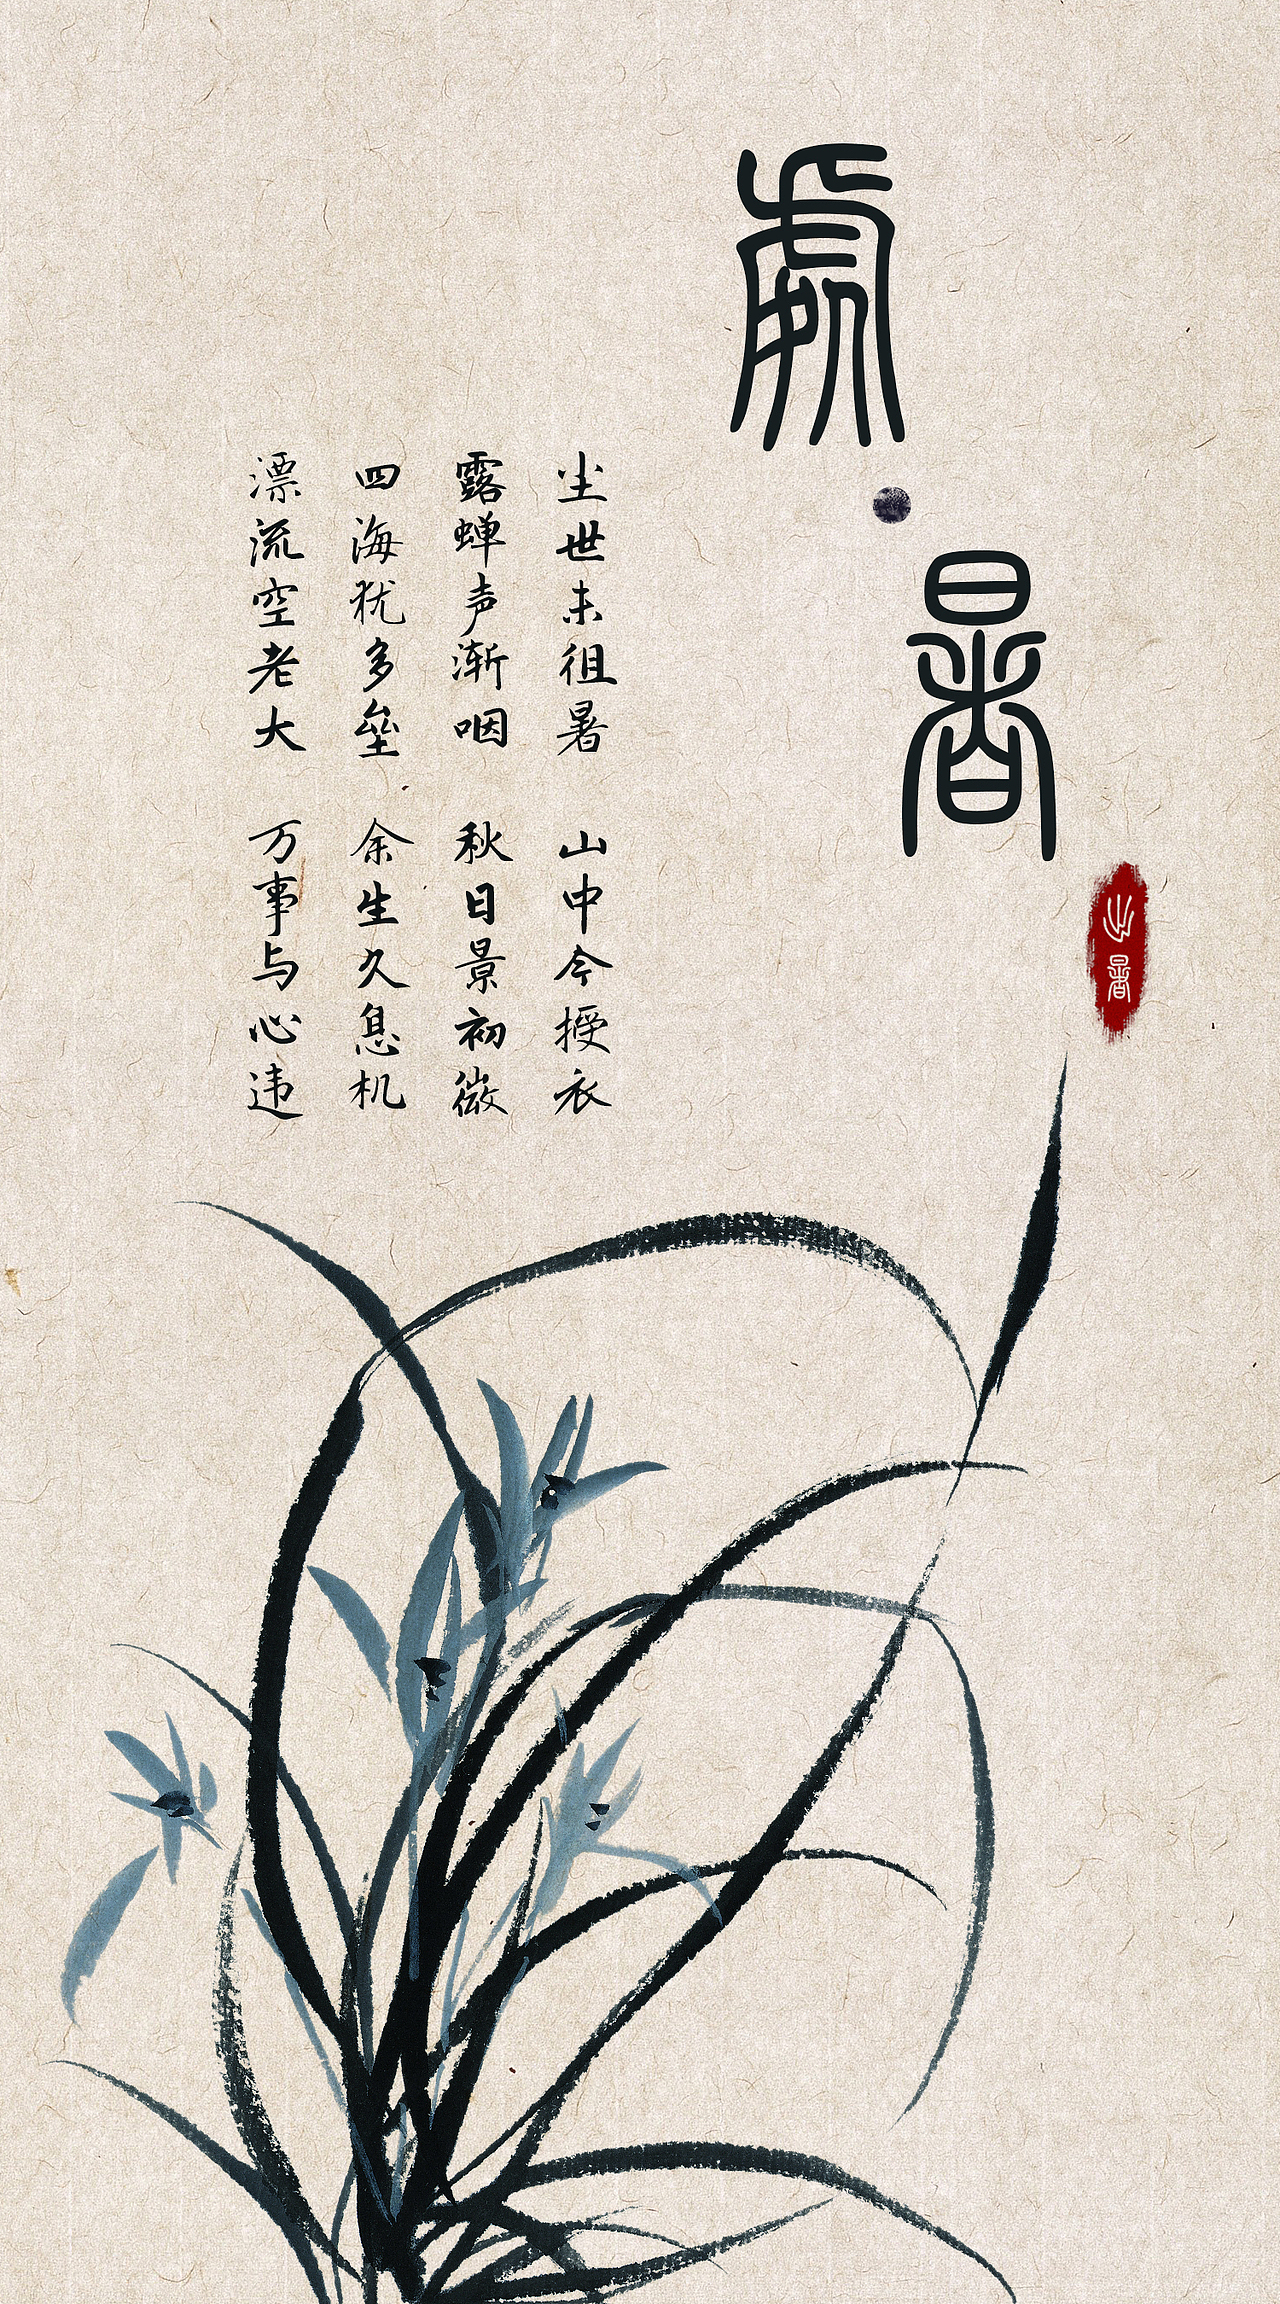 處·暑
山暑
尘世未徂暑 山中今授衣
露蝉声渐咽 秋日景初微
四海犹多垒 余生久息机
漂流空老大 万事与心违